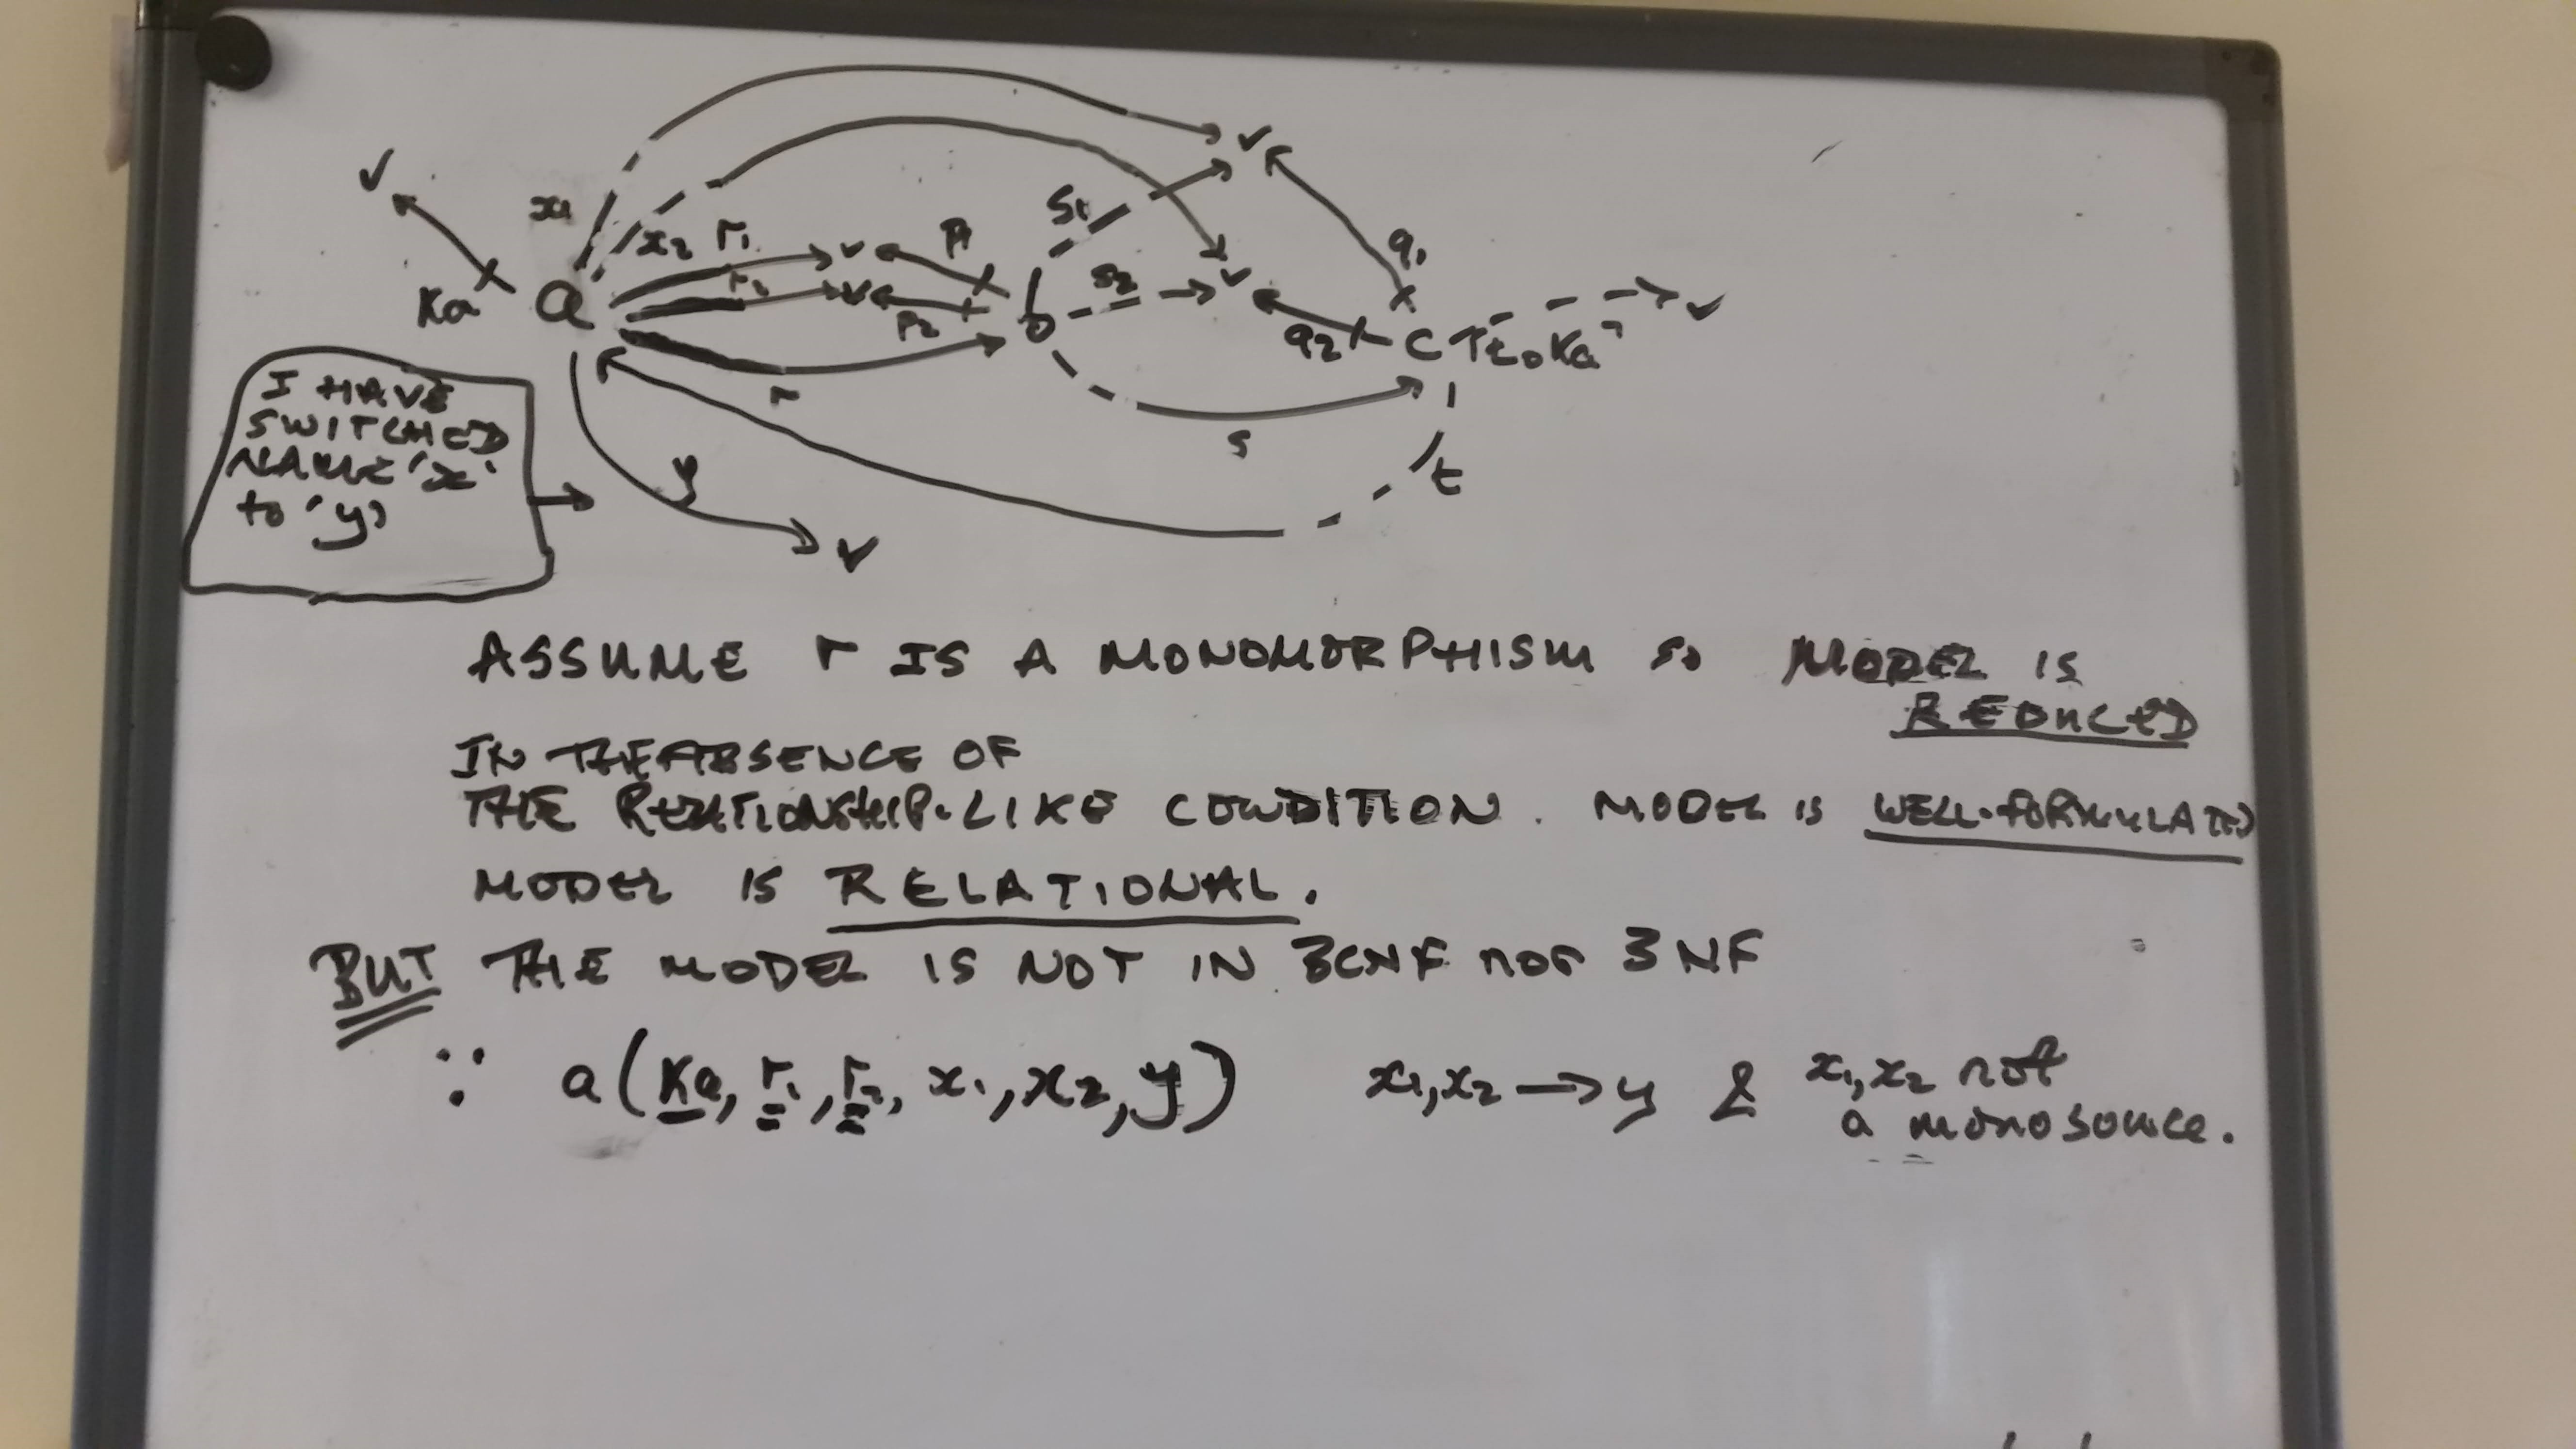 x1
x2
r1
r2
p1
p2
s1
s2
q1
q2
v
v
v
v
v
v
v
Ka
a
b
c
⌜t∘Ka⌝
r
s
t
y
I HAVE
SWITCHED
NAME 'x'
to 'y'
ASSUME r IS A MONOMORPHISM so MODEL IS
REDUCED
IN THE ABSENCE OF
THE RELATIONSHIP-LIKE CONDITION. MODEL IS WELL-FORMULATED
MODEL IS RELATIONAL.
BUT THE MODEL IS NOT IN BCNF nor 3NF
∵ a(Ka, r1, r2, x1, x2, y) x1,x2 → y & x1,x2 not
a mono source.